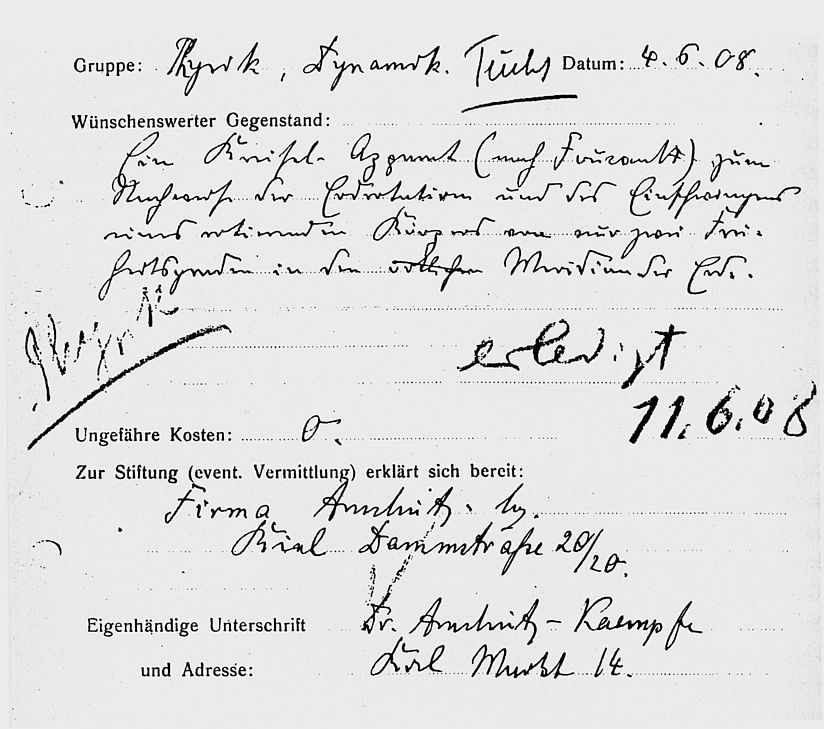 Gruppe: Physik, Dynamik. Datum: 4.6.08.
Wünschenswerter Gegenstand:
Ein Kreisel-Apparat (nach Foucault) zum
Nachweise der Erdrotation und des Einschwingens
eines rotierenden Körpers von nur zwei Frei-
heitsgraden in den örtlichen Meridian der Erde.
Physik
erledigt
11.6.08
Ungefähre Kosten: 0.
Zur Stiftung (event. Vermittlung) erklärt sich bereit:
Firma Anschütz
Kiel Dammstraße 20/20.
Eigenhändige Unterschrift Dr. Anschütz-Kaempfe
und Adresse: Kiel Markt 14.